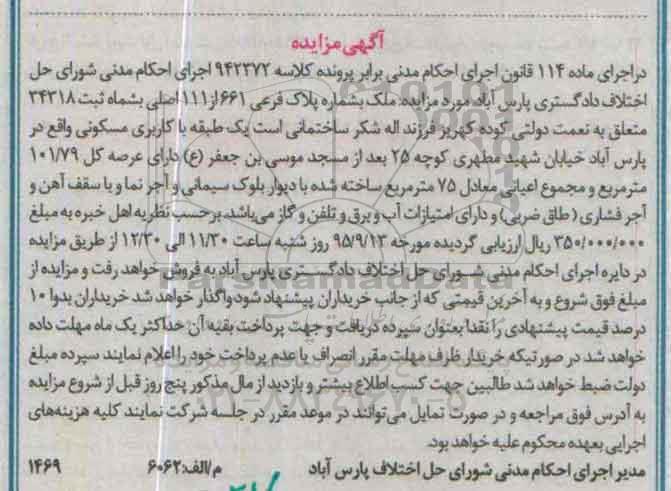 آگهی مزایده
دراجرای ماده ۱۱۴ قانون اجرای احکام مدنی برابر پرونده کلاسه ۹۴۲۳۷۲ اجرای احکام مدنی شورای حل
اختلاف دادگستری پارس آباد، مورد مزایده: ملک بشماره پلاک فرعی ۶۶۱ از ۱۱۱ اصلی بشماه ثبت ۳۴۳۱۸
متعلق به نعمت دولتی کوده کهریز فرزند اله شکر ساختمانی است یک طبقه با کاربری مسکونی واقع در
پارس آباد خیابان شهید مطهری کوچه ۲۵ بعد از مسجد موسی بن جعفر (ع) دارای عرصه کل ۱۰۱/۷۹
مترمربع و مجموع اعیانی معادل ۷۵ مترمربع ساخته شده با دیوار بلوک سیمانی و آجر نما و با سقف آهن و
آجر فشاری (طاق ضربی) و دارای امتیازات آب و برق و تلفن و گاز می‌باشد. برحسب نظریه اهل خبره به مبلغ
۳۵۰/۰۰۰/۰۰۰ ریال ارزیابی گردیده مورخه ۹۵/۹/۱۳ روز شنبه ساعت ۱۱/۳۰ الی ۱۲/۳۰ از طریق مزایده
در دایره اجرای احکام مدنی شورای حل اختلاف دادگستری پارس آباد به فروش خواهد رفت و مزایده از
مبلغ فوق شروع و به آخرین قیمتی که از جانب خریداران پیشنهاد شود واگذار خواهد شد خریداران بدوا ۱۰
درصد قیمت پیشنهادی را نقدا بعنوان سپرده دریافت و جهت پرداخت بقیه آن حداکثر یک ماه مهلت داده
خواهد شد در صورتیکه خریدار ظرف مهلت مقرر انصراف یا عدم پرداخت خود را اعلام نمایند سپرده مبلغ
دولت ضبط خواهد شد طالبین جهت کسب اطلاع بیشتر و بازدید از مال مذکور پنج روز قبل از شروع مزایده
به آدرس فوق مراجعه و در صورت تمایل می‌توانند در موعد مقرر در جلسه شرکت نمایند کلیه هزینه‌های
اجرایی بعهده محکوم علیه خواهد بود.
مدیر اجرای احکام مدنی شورای حل اختلاف پارس آباد م/الف:۶۰۶۲ ۱۴۶۹
ParsNamadData
۰۲۱-۸۸۳۴۹۶۷۰-۵